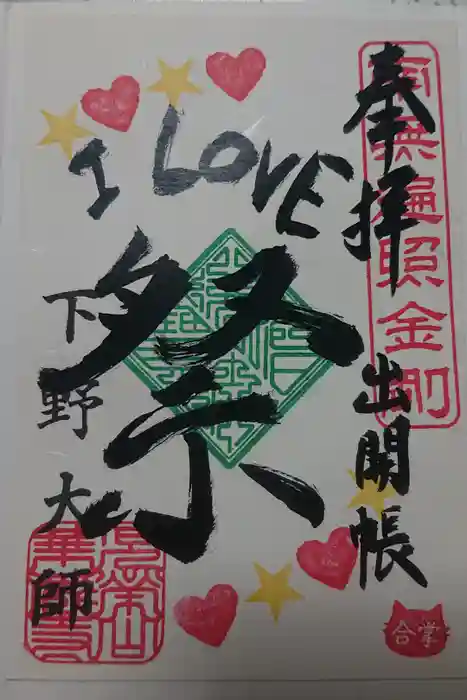 奉拝 出開帳
南無遍照金剛
I LOVE
祭
下野大師
合掌